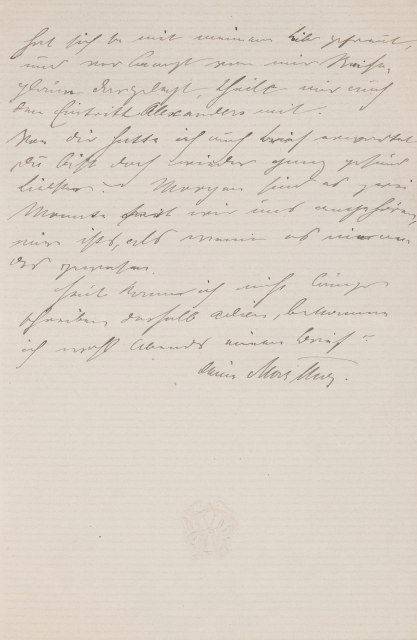 hat sich so mit meinem Liede gefreut,
und verlangt von mir Reise-
pläne dargelegt, theilte mir auch
den Eintritt Alexanders mit.
Von dir hatte ich auch Brief erwartet
Du bist doch wieder ganz gesund
Liebster? Morgen sind es zwei
Monate seit wir uns angehören,
mir ists, als wenn es nie an-
ders gewesen.
Heute kann ich nicht länger
schreiben, deshalb adieu, bekomme
ich wohl Abends einen Brief?
Deine